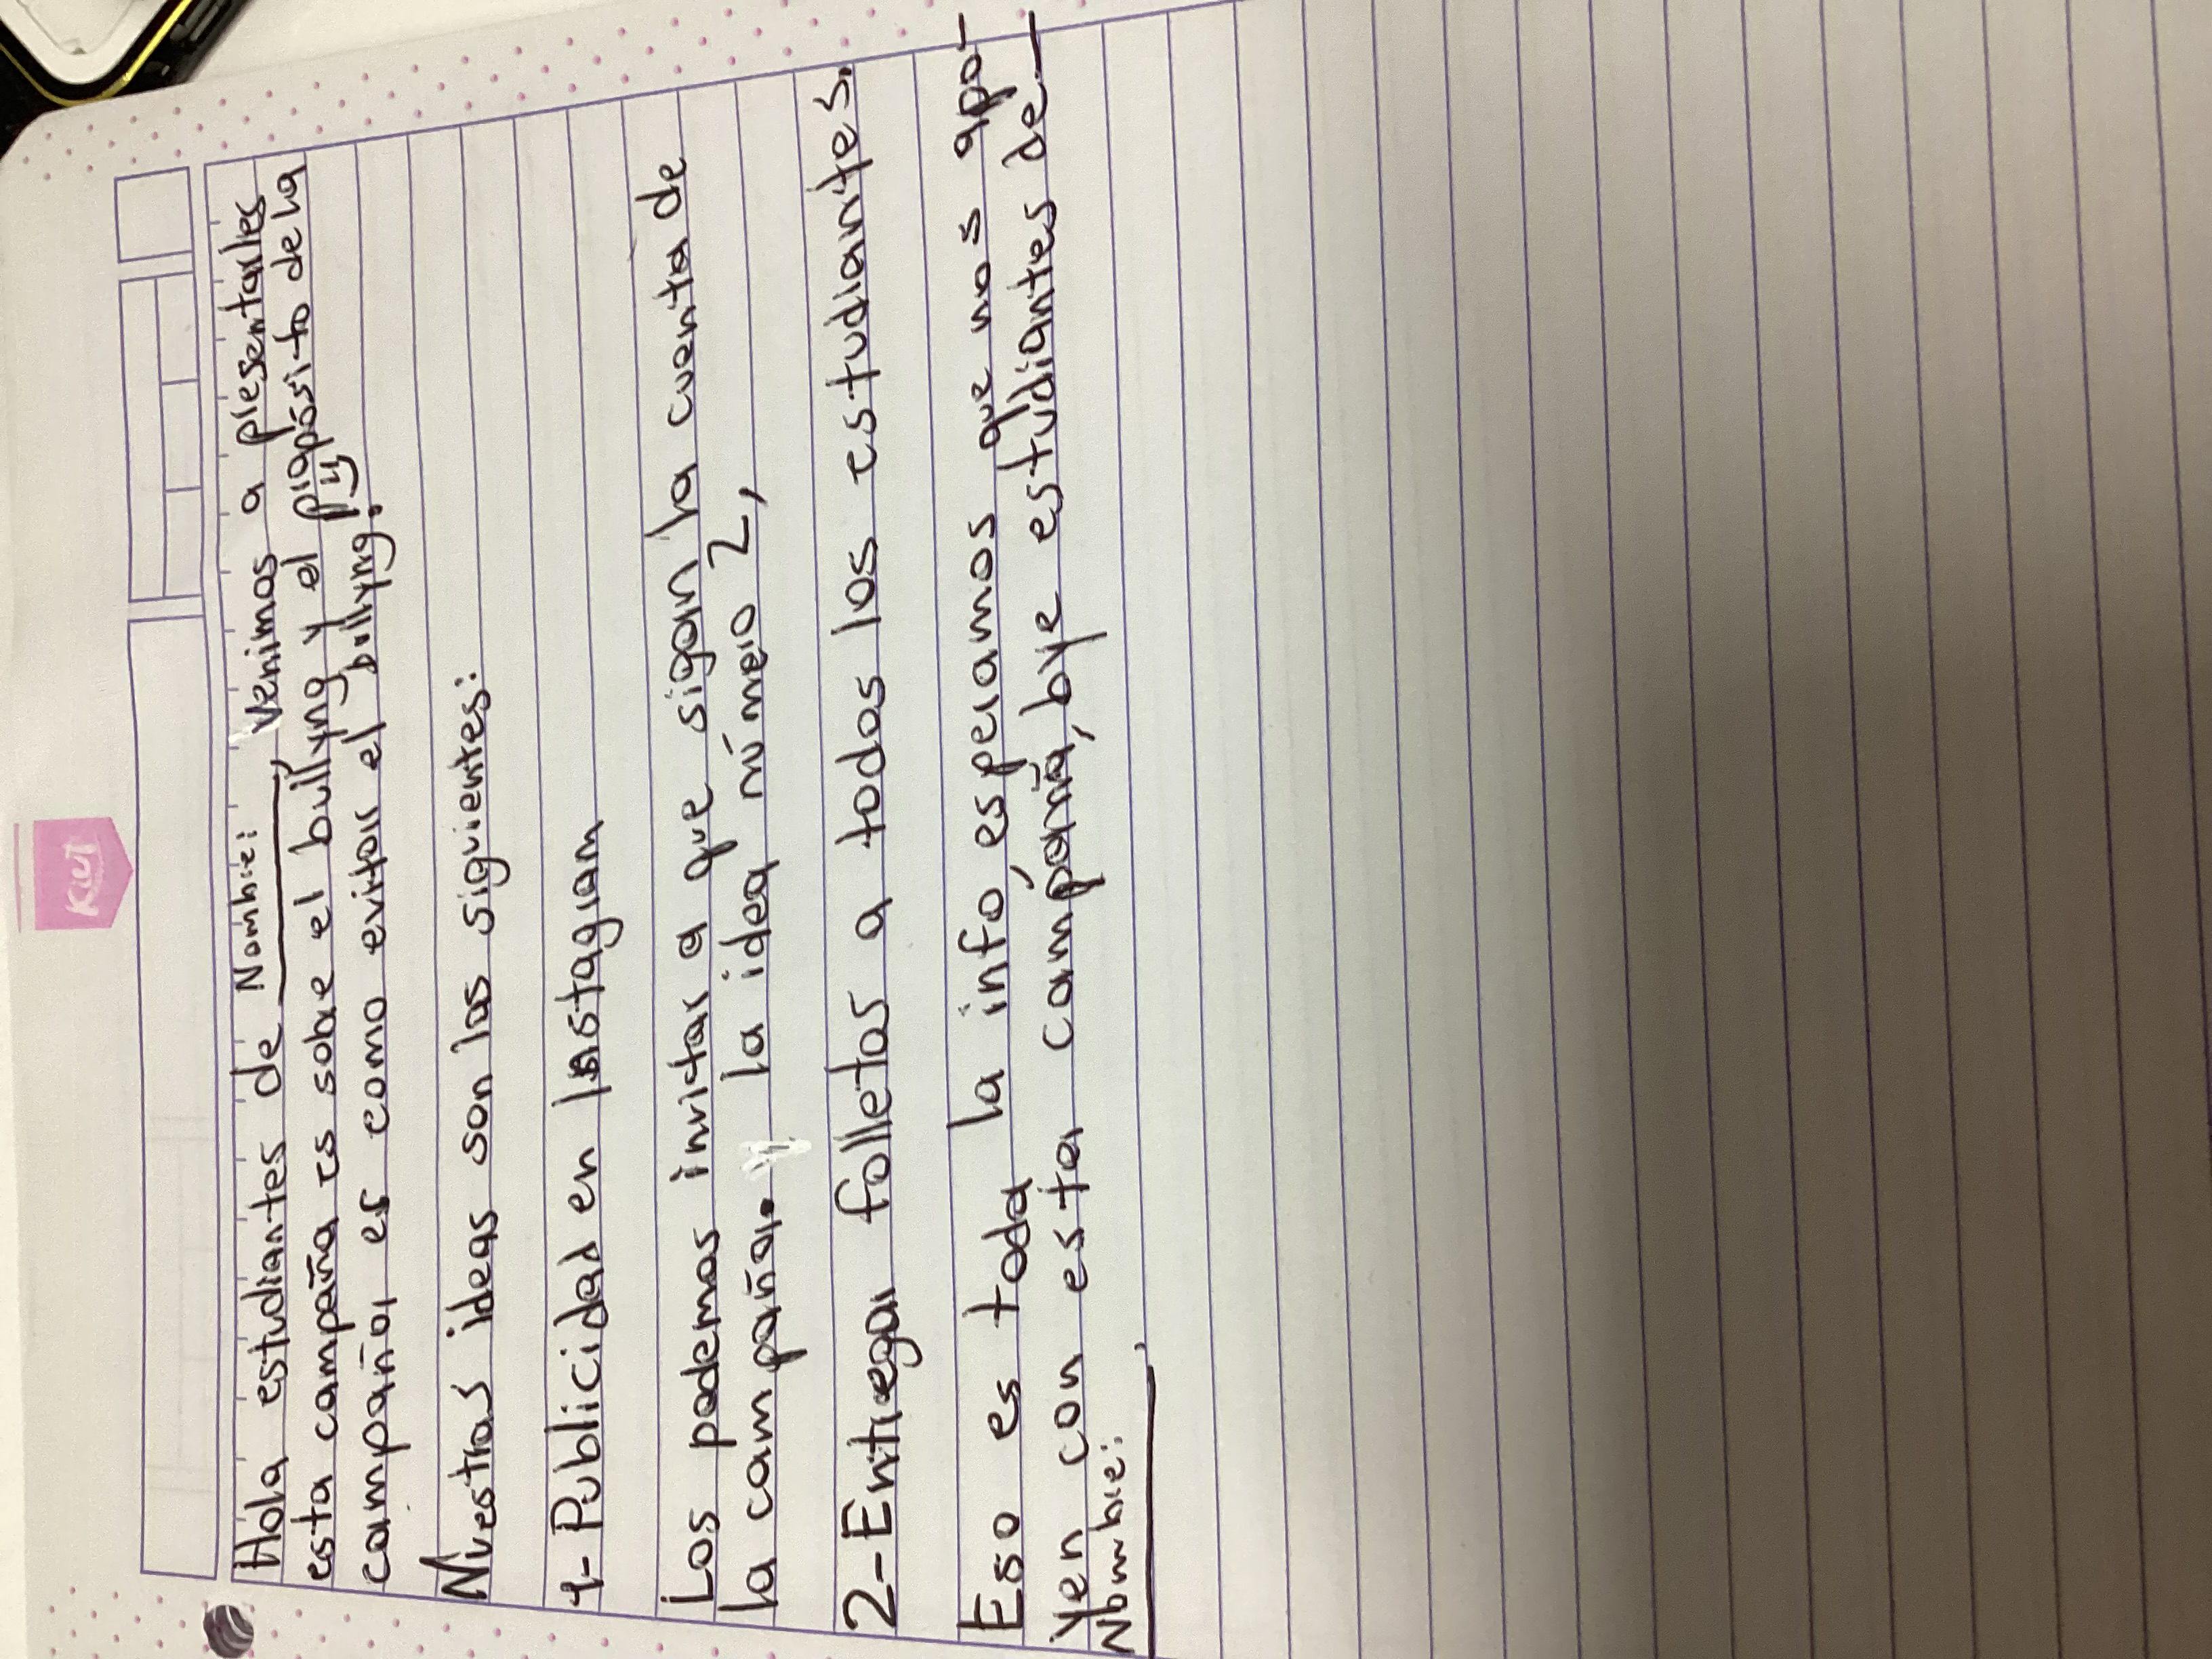 Kiut
Hola estudiantes de Nombre: ______, venimos a presentarles
esta campaña es sobre el bullyng y el propósito de la
campaña es como evitar el bullyng.
Nuestras ideas son las siguientes:
1-Publicidad en Instagram
Los podemos invitar a que sigan la cuenta de
la campaña. la idea número 2,
2-Entregar folletos a todos los estudiantes.
Eso es toda la info, esperamos que nos apo-
yen con esta campaña, bye estudiantes de __
Nombre: ______.